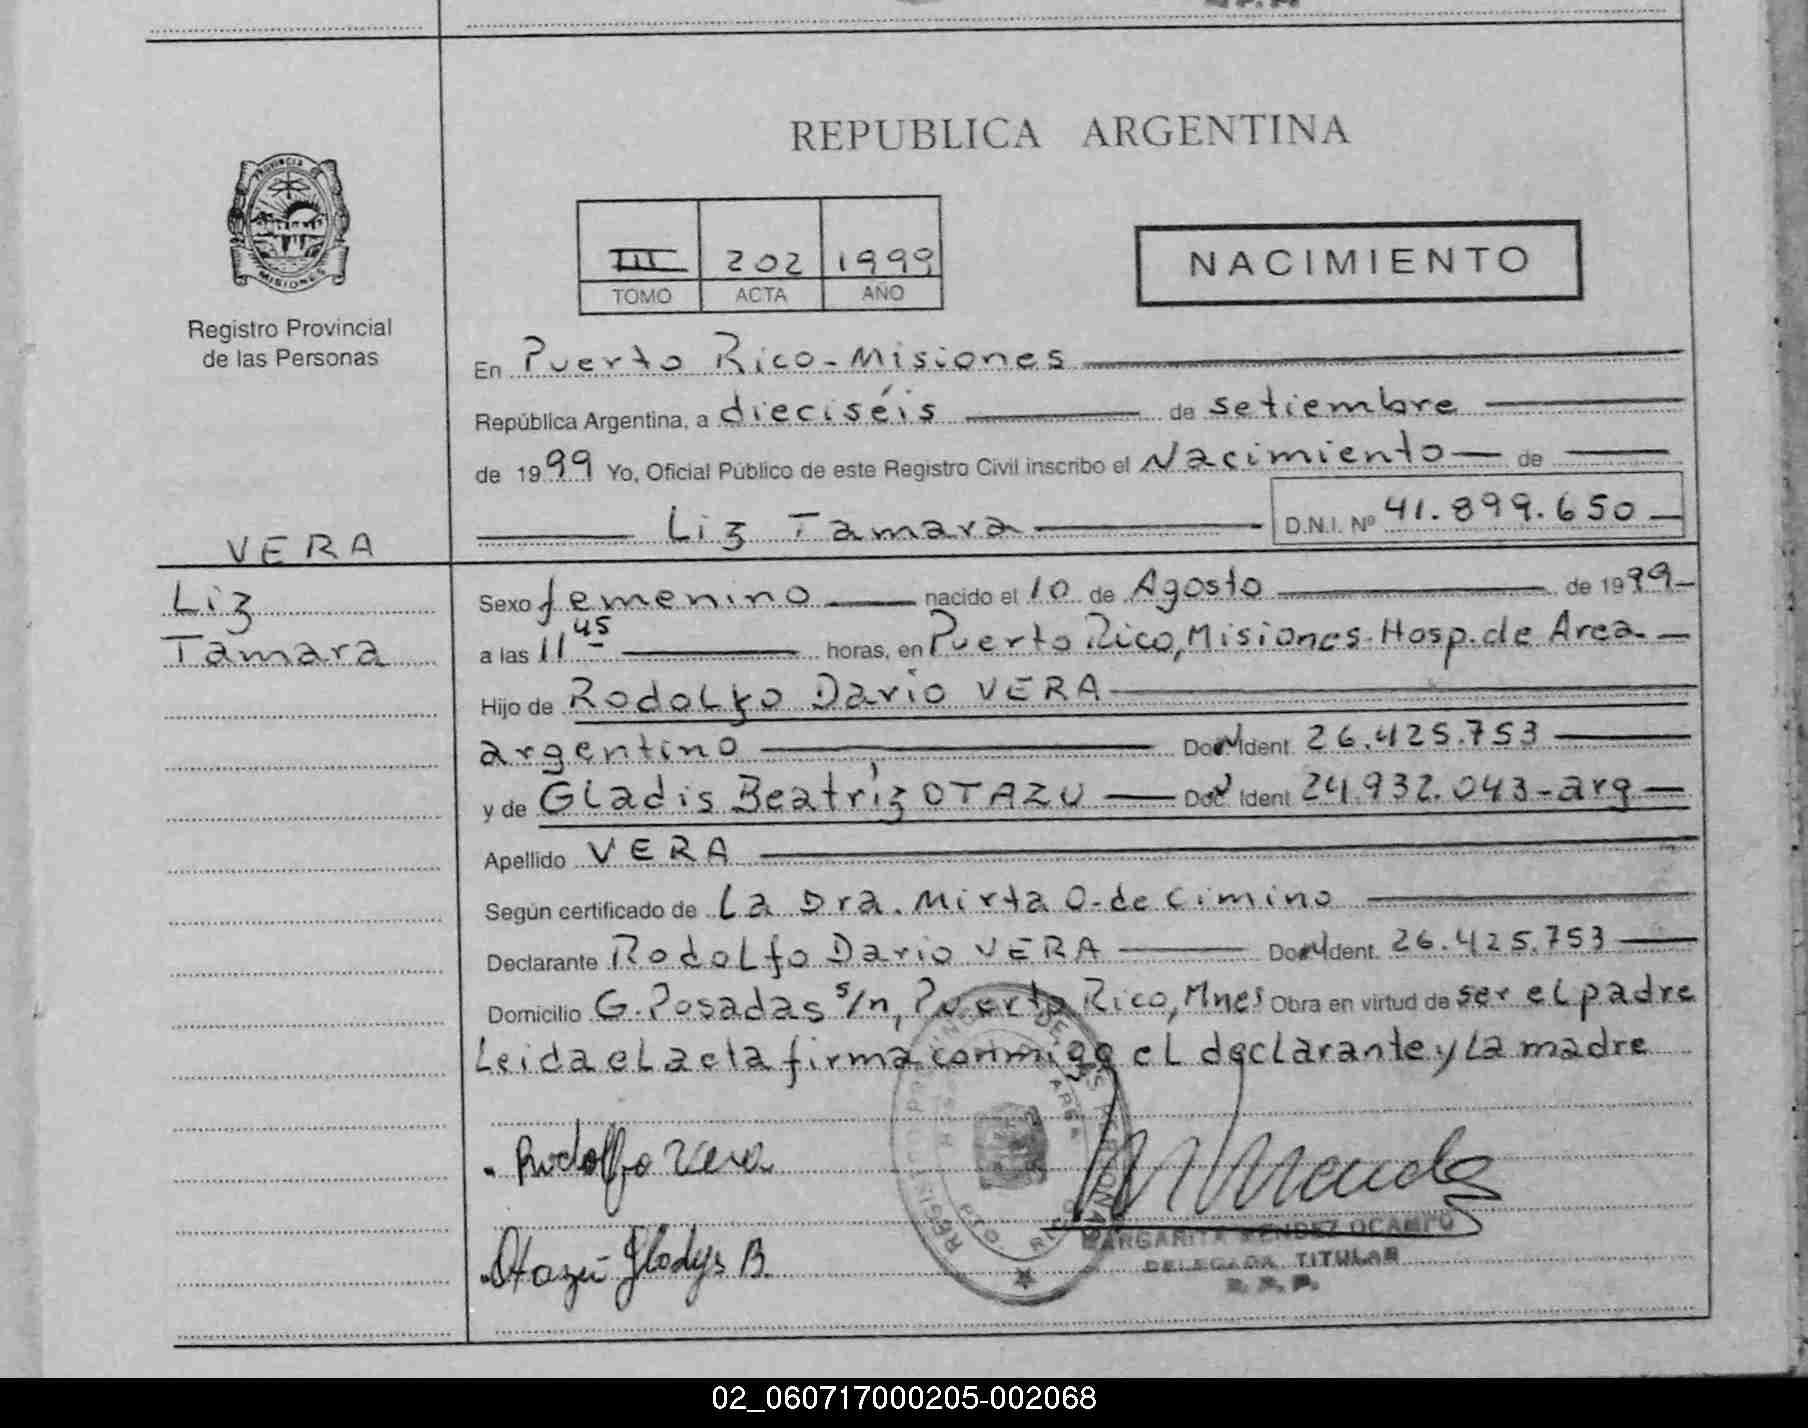 REPUBLICA ARGENTINA
PROVINCIA DE
MISIONES
Registro Provincial
de las Personas
III 202 1999
TOMO ACTA AÑO
NACIMIENTO
En Puerto Rico - Misiones
República Argentina, a dieciséis de setiembre
de 1999 Yo, Oficial Público de este Registro Civil inscribo el Nacimiento de
Liz Tamara D.N.I. Nº 41.899.650
VERA
Liz
Tamara
Sexo femenino nacido el 10 de Agosto de 1999
a las 11 45 horas, en Puerto Rico, Misiones-Hosp. de Area
Hijo de Rodolfo Dario VERA
argentino Doc Ident. 26.425.753
y de Gladis Beatríz OTAZU Doc Ident 24.932.043-arg
Apellido VERA
Según certificado de La Dra. Mirta O. de Cimino
Declarante Rodolfo Dario VERA Doc Ident. 26.425.753
Domicilio G. Posadas s/n, Puerto Rico, Mnes Obra en virtud de ser el padre
Leida el acta firma conmigo el declarante y la madre
Rodolfo Vera
Otazú Gladys B.
MARGARITA MENDEZ OCAMPO
DELEGADA TITULAR
R. P. P.
02_060717000205-002068